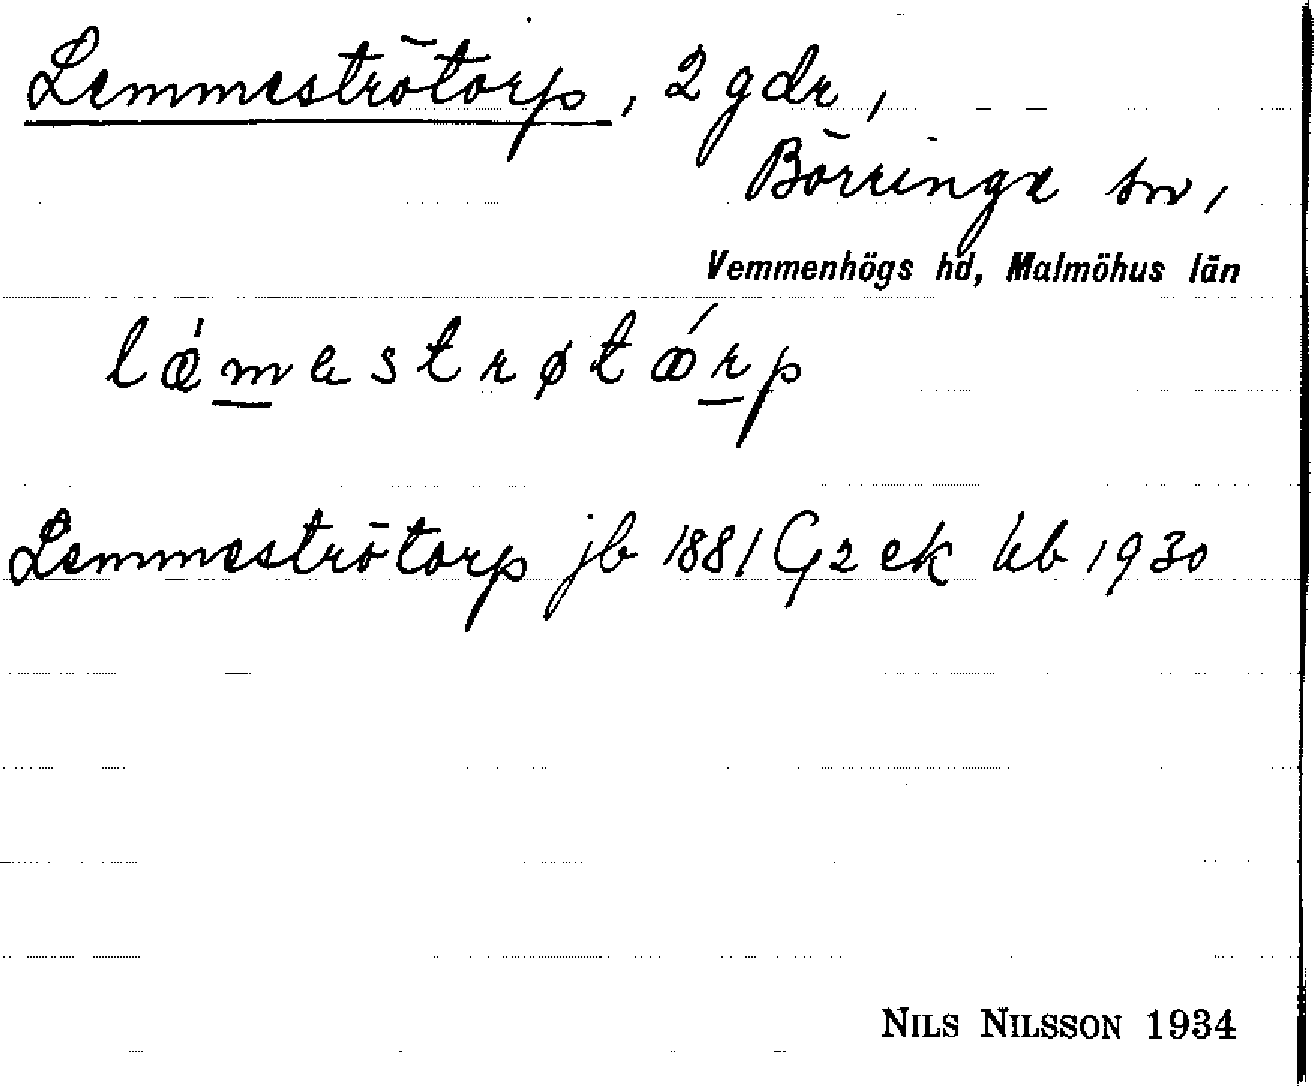 Lemmeströtorp, 2 gdr,
Börringe sn,
Vemmenhögs hd, Malmöhus län
lǽmestrøtǽrp
Lemmeströtorp jb 1881 G2 ek kb 1930
NILS NILSSON 1934